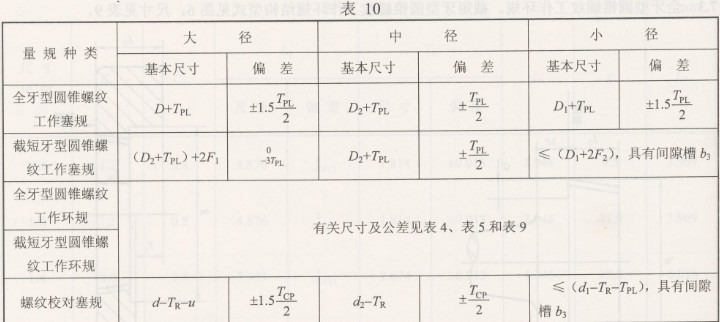 表 10
量规种类 大径 中径 小径
基本尺寸 偏差 基本尺寸 偏差 基本尺寸 偏差
全牙型圆锥螺纹
工作塞规
D+T_PL ±1.5 T_PL/2 D₂+T_PL ±T_PL/2 D₁+T_PL ±1.5 T_PL/2
截短牙型圆锥螺
纹工作塞规
(D₂+T_PL)+2F₁ 0 −3T_PL D₂+T_PL ±T_PL/2 ≤(D₁+2F₂), 具有间隙槽 b₃
全牙型圆锥螺纹
工作环规
截短牙型圆锥螺
纹工作环规
有关尺寸及公差见表 4、表 5 和表 9
螺纹校对塞规 d−T_R−u ±1.5 T_CP/2 d₂−T_R ±T_CP/2 ≤(d₁−T_R−T_PL), 具有间隙
槽 b₃